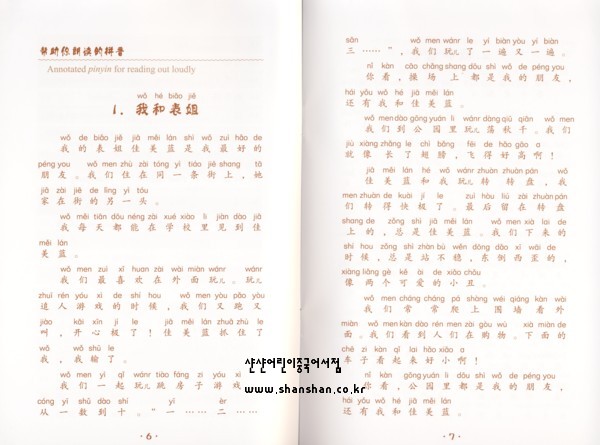 帮助你朗读的拼音
Annotated pinyin for reading out loudly
wǒ hé biǎo jiě
1. 我和表姐
wǒ de biǎo jiě jiā měi lán shì wǒ zuì hǎo de
我的表姐佳美蓝是我最好的
péng you wǒ men zhù zài tóng yì tiáo jiē shang tā
朋友。我们住在同一条街上,她
jiā zài jiē de lìng yì tóu
家在街的另一头。
wǒ měi tiān dōu néng zài xué xiào li jiàn dào jiā
我每天都能在学校里见到佳
měi lán
美蓝。
wǒ men zuì xǐ huan zài wài miàn wánr wánr
我们最喜欢在外面玩儿。玩儿
zhuī rén yóu xì de shí hou wǒ men yòu pǎo yòu
追人游戏的时候,我们又跑又
jiào kāi xīn jí le jiā měi lán zhuā zhù le
叫,开心极了!佳美蓝抓住了
wǒ wǒ shū le
我,我输了。
wǒ men yì qǐ wánr tiào fáng zi yóu xì
我们一起玩儿跳房子游戏,
cóng yī shǔ dào shí yī èr
从一数到十。“一……二……
· 6 ·
sān wǒ men wánr le yí biàn yòu yí biàn
三……”,我们玩儿了一遍又一遍。
nǐ kàn cāo chǎng shang dōu shì wǒ de péng you
你看,操场上都是我的朋友,
hái yǒu wǒ hé jiā měi lán
还有我和佳美蓝。
wǒ men dào gōng yuán li wánr dàng qiū qiān wǒ men
我们到公园里玩儿荡秋千。我们
jiù xiàng zhǎng le chì bǎng fēi de hǎo gāo a
就像长了翅膀,飞得好高啊!
jiā měi lán hé wǒ wánr zhuàn zhuàn pán wǒ
佳美蓝和我玩儿转转盘,我
men zhuàn de kuài jí le zuì hòu liú zài zhuàn pán
们转得快极了。最后留在转盘
shang de zǒng shì jiā měi lán wǒ men xià lai de
上的,总是佳美蓝。我们下来的
shí hou zǒng shì zhàn bù wěn dōng dǎo xī wāi de
时候,总是站不稳,东倒西歪的,
xiàng liǎng gè kě ài de xiǎo chǒu
像两个可爱的小丑。
wǒ men cháng cháng pá shàng wéi qiáng kàn wài
我们常常爬上围墙看外
miàn wǒ men kàn dào rén men zài gòu wù xià miàn de
面。我们看到人们在购物。下面的
chē zi kàn qǐ lai hǎo xiǎo a
车子看起来好小啊!
nǐ kàn gōng yuán li dōu shì wǒ de péng you
你看,公园里都是我的朋友,
hái yǒu wǒ hé jiā měi lán
还有我和佳美蓝。
· 7 ·
샨샨어린이중국어서점
www.shanshan.co.kr